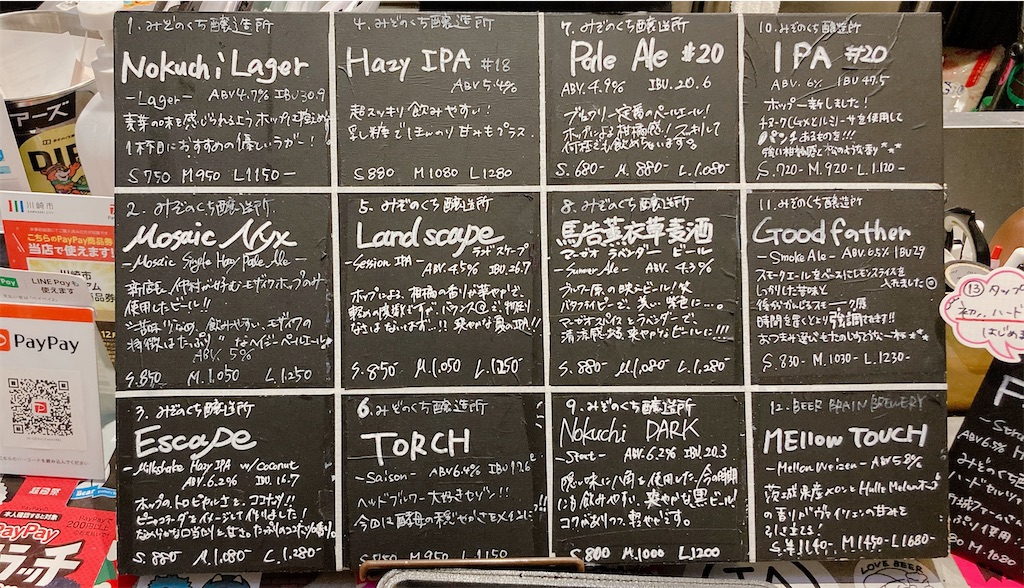 1. みぞのくち醸造所
Nokuchi Lager
-Lager- ABV4.7% IBU30.9
麦芽の味を感じられるようホップは控えめ
1杯目におすすめの優しいラガー!
S 750 M 950 L 1150-
4. みぞのくち醸造所
Hazy IPA #18
ABV 5.4%
超スッキリ飲みやすい!
乳糖でほんのり甘みもプラス。
S 880 M 1080 L 1280
7. みぞのくち醸造所
Pale Ale #20
ABV. 4.9% IBU. 20.6
ブルワリー定番のペールエール!
ホップによる柑橘感! スッキリして
何杯でも飲めちゃいます。
S. 680- M. 880- L. 1.080-
10. みぞのくち醸造所
IPA #20
ABV. 6% IBU 47.5
ホップ一新しました!
を使用して
強い柑橘感と松のような香り
S. 720- M. 920- L. 1.120-
2. みぞのくち醸造所
Mosaic Nyx
-Mosaic Single Hazy Pale Ale-
使用したビール!!
飲みやすい、モザイクの
特徴はたっぷり なヘイジーペールエール
ABV. 5%
S. 850 M. 1.050 L. 1.250
5. みぞのくち醸造所
Landscape
ランドスケープ
-Session IPA- ABV. 4.5% IBU. 26.7
ホップによる、柑橘の香りが華やかで、
軽めの度数ですが、バランス◎で、物足り
なさはないはず..!! 爽やかな真のIPA!!
S. 850 M. 1.050 L. 1.250-
8. みぞのくち醸造所
馬告薫衣草麦酒
マーガオ ラベンダー ビール
-Summer Ale- ABV. 4.3%
フラワー原の映えビール!笑
バタフライピーで、青い、紫色に…。
マーガオスパイスとラベンダーで、
清涼感ある爽やかなビールに!!!
S. 880- M. 1.080- L. 1.280-
11. みぞのくち醸造所
Good father
-Smoke Ale- ABV 6.5% IBU 29
スモークエールをベースにレモンスライスを
入れました◎
しっかりした甘味と
後からかおるスモーク感
時間を置くとより強調されます!!
S. 830- M. 1030- L. 1.230-
3. みぞのくち醸造所
Escape
-Milkshake Hazy IPA w/coconut
ABV. 6.2% IBU 16.7
ホップのトロピカルさと、ココナッツ!!
ピニャコラーダをイメージして作りました!
なめらかな口当たりと甘さ。たっぷりのココナッツの香り。
S. 880 M. 1.080- L. 1.280-
6. みぞのくち醸造所
TORCH
-Saison- ABV 6.4% IBU 17.2
ヘッドブルワー大好きセゾン!!
今回は酵母の穏やかさをメインに!!
S 750 M 950 L 1150
9. みぞのくち醸造所
Nokuchi DARK
-Stout- ABV. 6.2% IBU 20.3
隠し味に八角を使用した、今の時期
にも飲みやすい、爽やかな黒ビール!
コクがありつつ、軽やかです。
S 800 M. 1000 L 1200
12. BEER BRAIN BREWERY
MEllow TOUCH
-Mellon Weizen- ABV 5.8%
茨城県産メロンとHulle Melonホップ
の香りがヴァイツェンの甘みを
引き立てる!
S. ¥1140- M. 1450- L. 1680-
川崎市
こちらのPayPay商品券
当店で使えます!
LINE Payも
使えます
PayPay
本人確認すると対象
PayPayで
⑬ タップ
ハード
はじめま
M. 1680
LOVE BEER